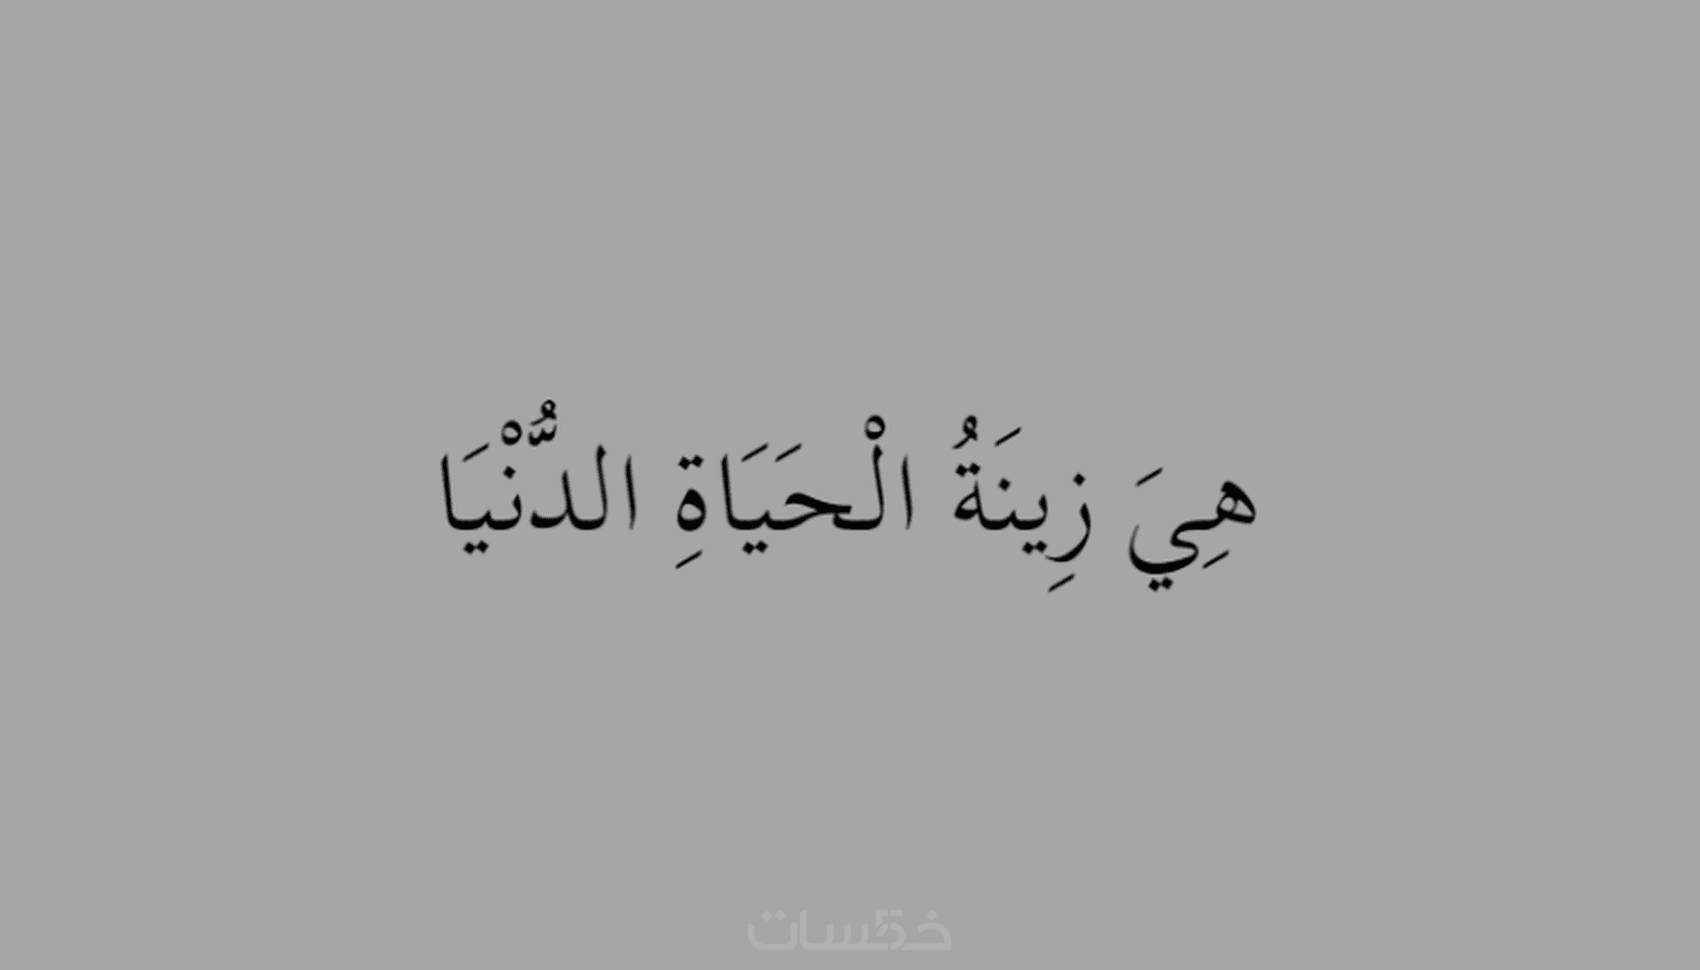 هِيَ زِينَةُ الْحَيَاةِ الدُّنْيَا
خمسات